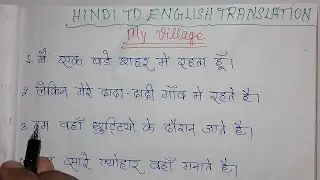 HINDI TO ENGLISH TRANSLATION
My Village
1. मैं एक बड़े शहर में रहता हूँ।
2. लेकिन मेरे दादा-दादी गाँव में रहते है।
3. हम वहाँ छुट्टियो के दौरान जाते है।
सारे त्योहार वहाँ मनाते है।